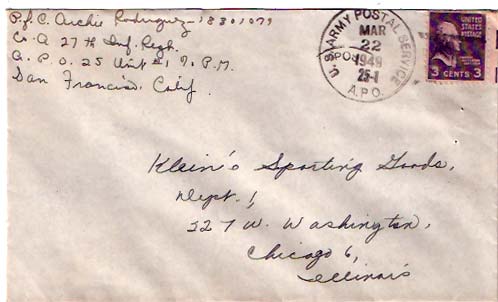 P.f.C. Archie Rodriguez - 18301079
Co. A 27th Inf. Regt.
A.P.O. 25 Unit #1 % P.M.
San Francisco, Calif.
U.S. ARMY POSTAL SERVICE
MAR
22
1949
25-1
A.P.O.
UNITED STATES
POSTAGE
3 CENTS 3
Klein's Sporting Goods,
Dept. 1,
227 W. Washington,
Chicago 6,
Illinois